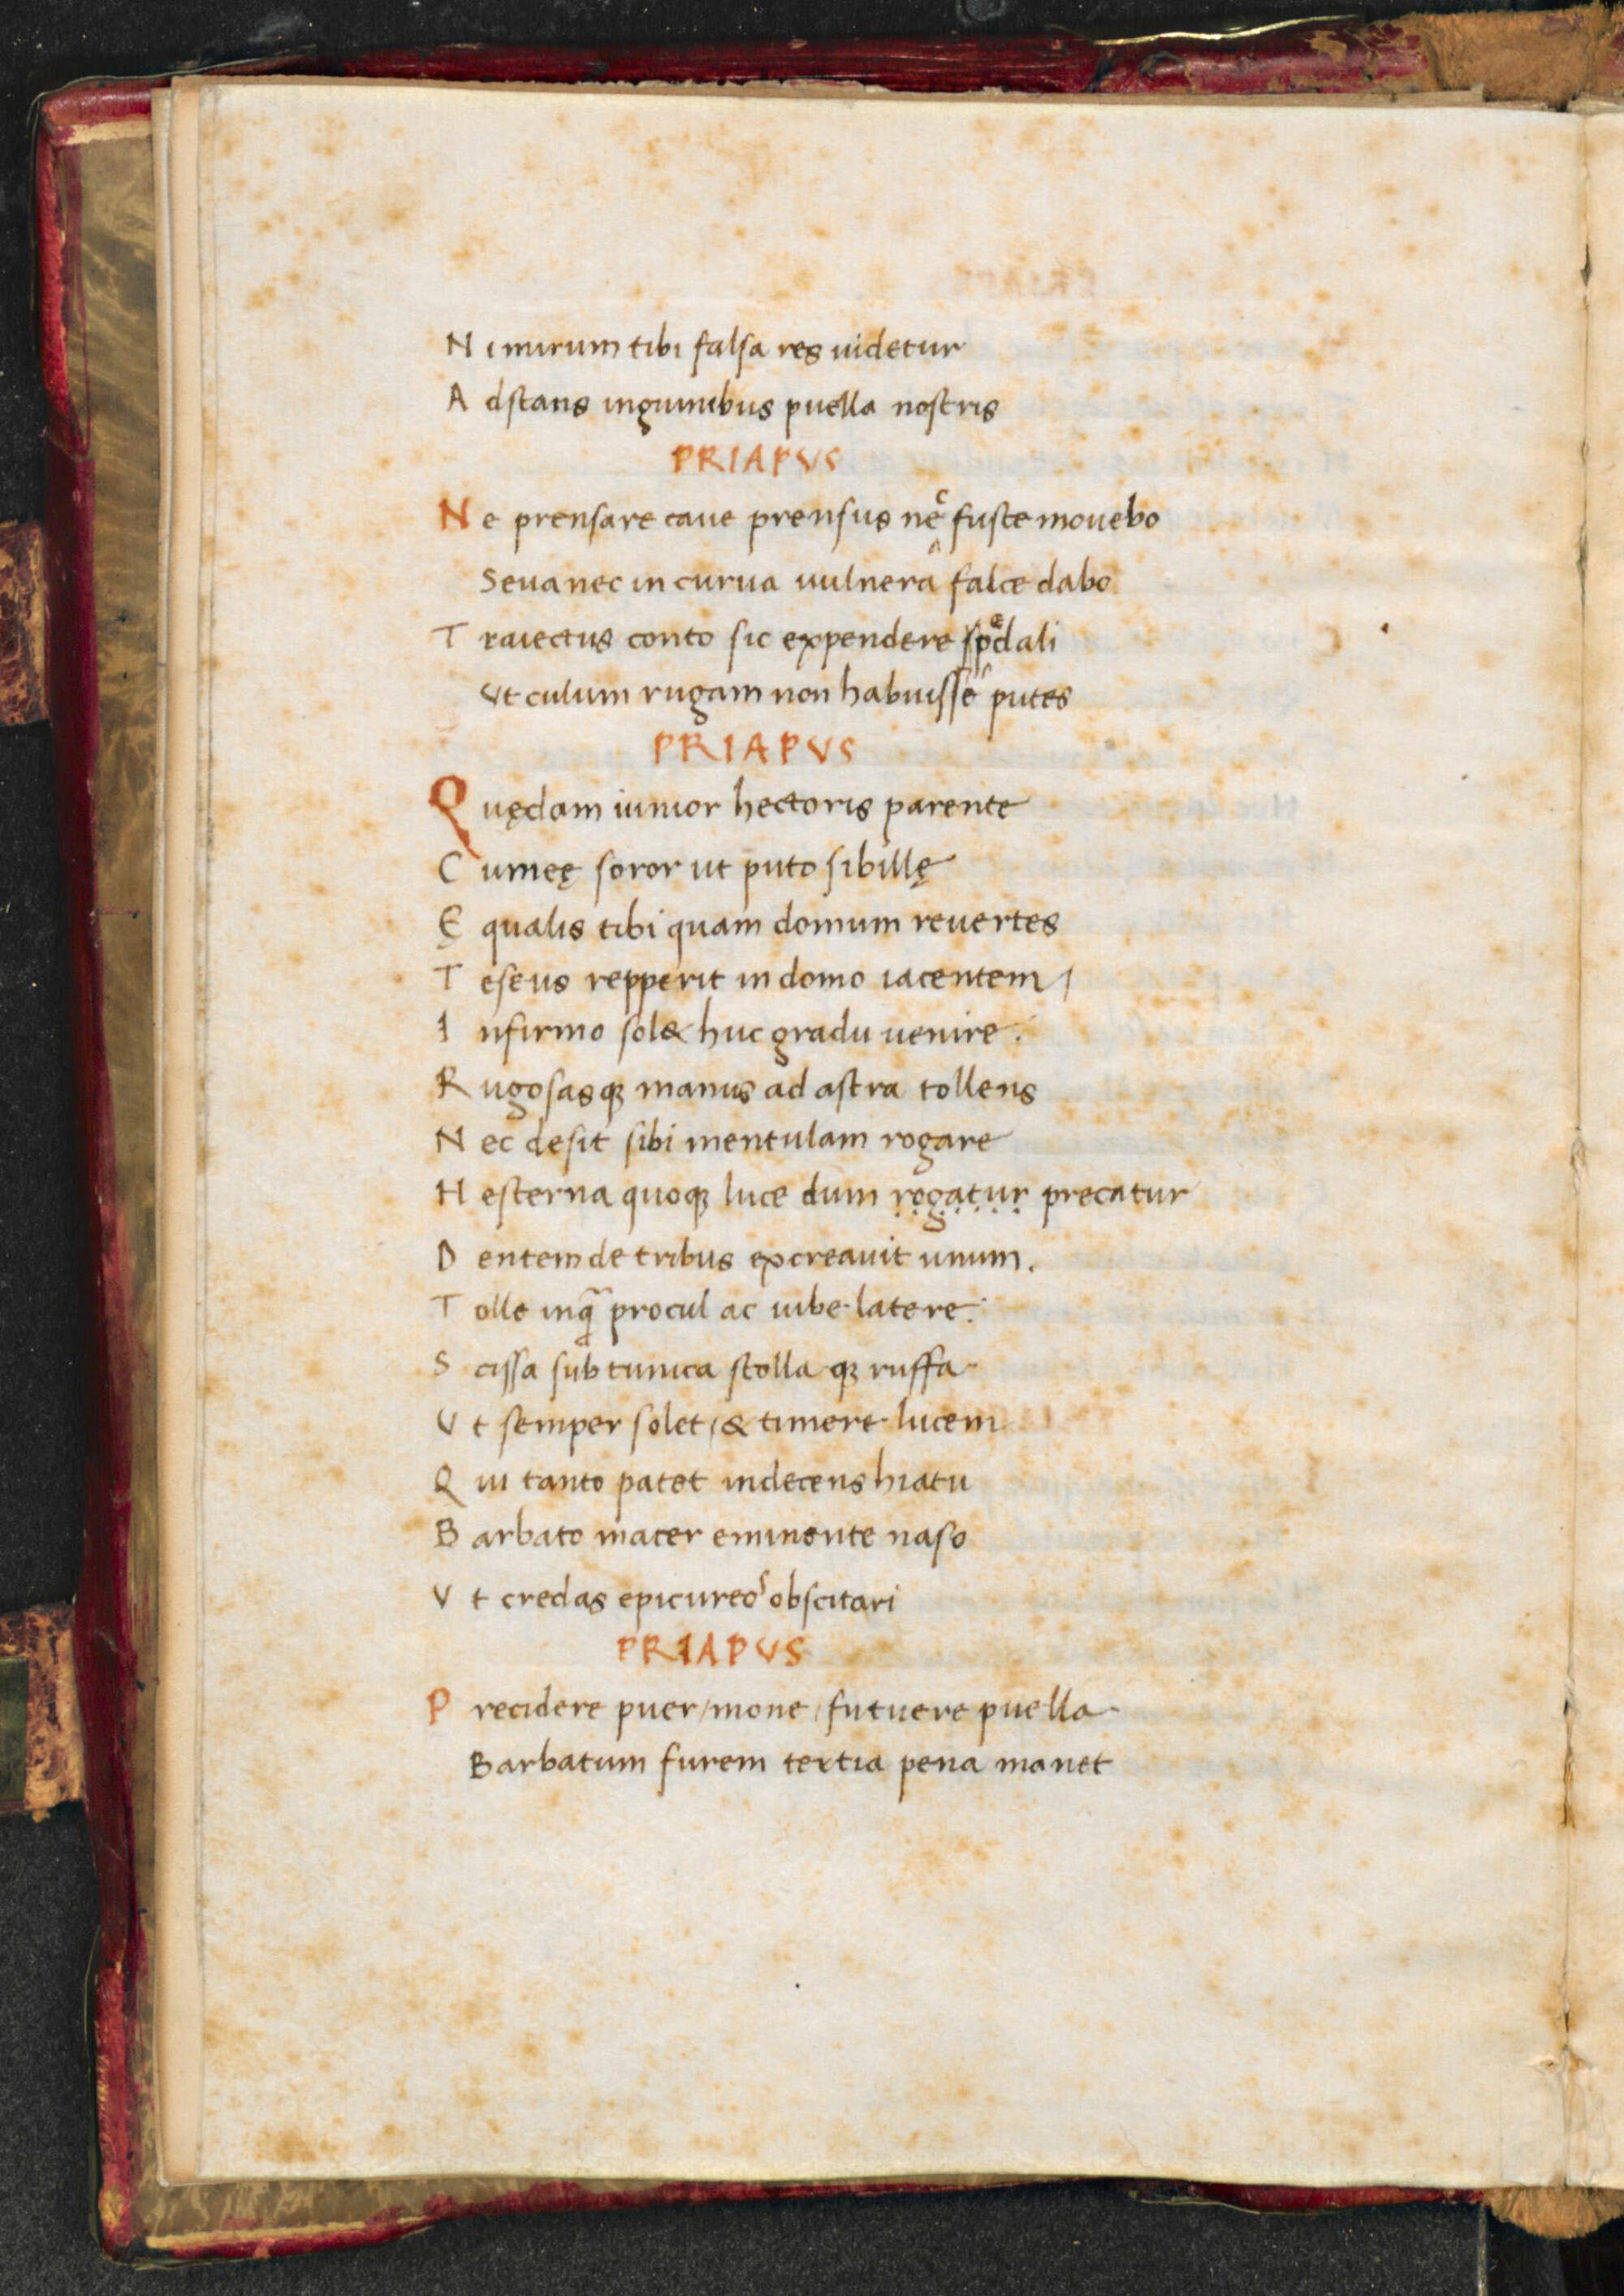 N imirum tibi falsa res uidetur
A dstans inguinibus puella nostris
PRIAPVS
N e prensare caue prensus nec fuste mouebo
Seua nec in curua uulnera falce dabo
T raiectus conto sic expendere spedali
Vt culum rugam non habuisse putes
PRIAPVS
Q uędam iunior hectoris parente
C umeę soror ut puto sibillę
Ę qualis tibi quam domum reuertes
T eseus repperit in domo iacentem /
I nfirmo sol& huc gradu uenire .
R ugosasqꝫ manus ad astra tollens
N ec desit sibi mentulam rogare
H esterna quoqꝫ luce dum ṛọg̣ạṭụṛ precatur
D entem de tribus excreauit unum.
T olle inqͣ procul ac iube latere:
S cissa sub tunica stolla qꝫ ruffa
V t semper solet / & timere lucem
Q ui tanto patet indecens hiatu
B arbato macer eminente naso
V t credas epicureos obscitari
PRIAPVS
P recidere puer / mone / futuere puella
Barbatum furem tertia pena manet